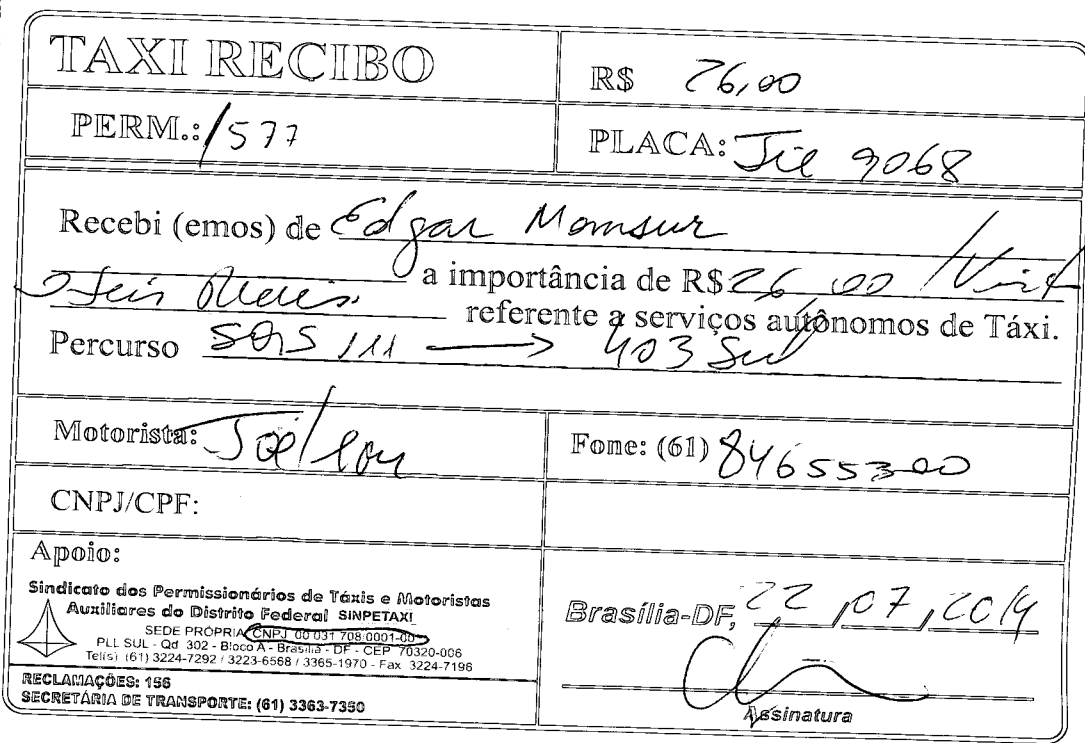 TAXI RECIBO
R$ 26,00
PERM.: 1577
PLACA: JIE 9068
Recebi (emos) de Edgar Momsur
a importância de R$ 26,00 / Vint
e Seis Reais. referente a serviços autônomos de Táxi.
Percurso SQS 111 → 403 Sul
Motorista: Joelson
Fone: (61) 84655300
CNPJ/CPF:
Apoio:
Sindicato dos Permissionários de Táxis e Motoristas
Auxiliares do Distrito Federal SINPETAXI
SEDE PRÓPRIA CNPJ 00 031 708 0001-00
PLL SUL - Qd 302 - Bloco A - Brasília - DF - CEP 70320-006
Tel(s) (61) 3224-7292 / 3223-6568 / 3365-1970 - Fax 3224-7196
RECLAMAÇÕES: 156
SECRETÁRIA DE TRANSPORTE: (61) 3363-7350
Brasília-DF, 22 / 07 / 2014
Assinatura